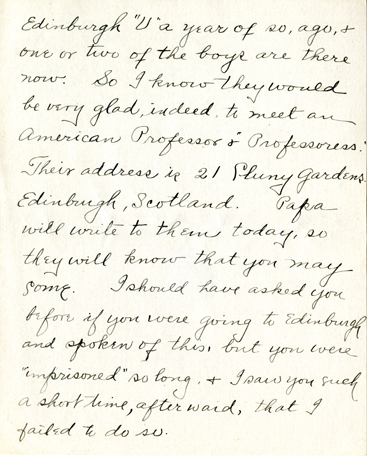 Edinburgh "U" a year of so, ago, &
one or two of the boys are there
now. So I know they would
be very glad, indeed, to meet an
American Professor & "Professoress."
Their address is 21 Pluny Gardens,
Edinburgh, Scotland. Papa
will write to them today, so
they will know that you may
come. I should have asked you
before if you were going to Edinburgh
and spoken of this, but you were
"imprisoned" so long, & I saw you such
a short time, afterward, that I
failed to do so.